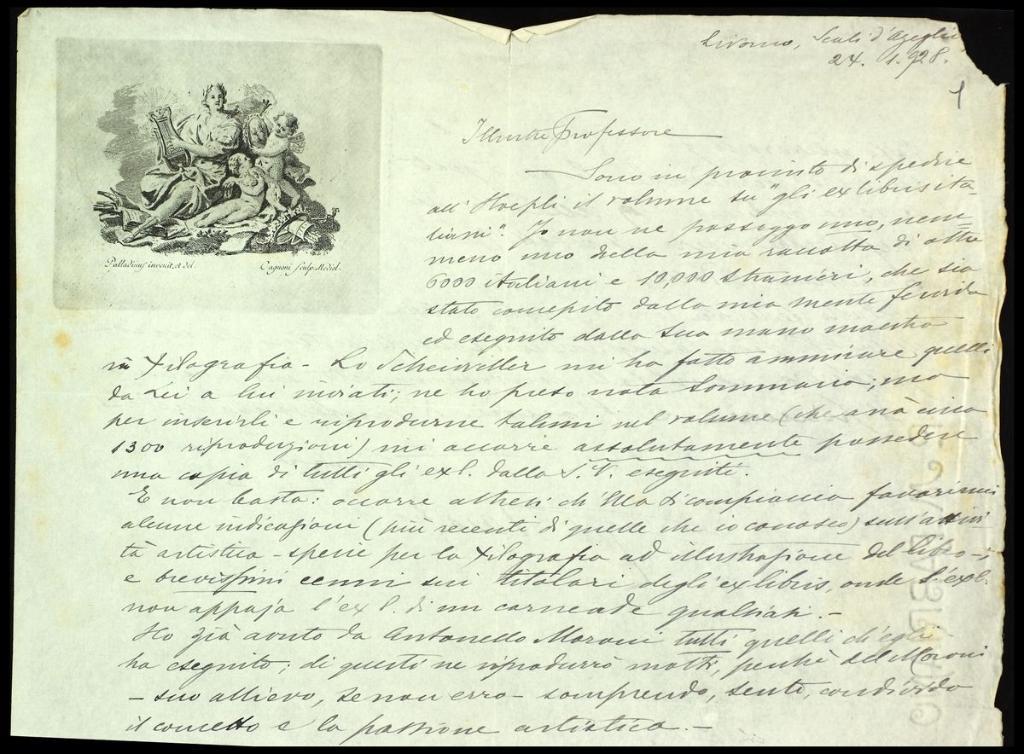 Livorno, Scali d'Azeglio
24. 1. 928.
1
Illustre Professore
Sono in procinto di spedire
all' Hoepli il volume su "gli ex libris ita-
liani". Io non ne posseggo uno, nem-
meno uno della mia raccolta di oltre
6000 italiani e 10,000 stranieri, che sia
stato concepito dalla mia mente fervida
ed eseguito dalla Sua mano maestra
in xilografia - Lo Scheiwiller mi ha fatto ammirare quelli
da Lei a lui inviati; ne ho preso nota sommaria; ma
per inserirli e riprodurne taluni nel volume (che avrà circa
1300 riproduzioni) mi occorre assolutamente possedere
una copia di tutti gli ex l. dalla S. V. eseguiti.
E non basta: occorre altresì ch'Ella si compiaccia favorirmi
alcune indicazioni (più recenti di quelle che io conosco) sull'attivi
tà artistica - specie per la xilografia ad illustrazione del libro -
e brevissimi cenni sui titolari degli ex libris, onde l'ex l.
non appaja l'ex l. di un carneade qualsiasi. -
Ho già avuto da Antonello Moroni tutti quelli ch'egli
ha eseguito; di questi ne riprodurrò molti, perchè del Moroni
- suo allievo, se non erro - comprendo, sento, condivido
il concetto e la passione artistica. -
Palladinus invenit, et del.
Cagnoni sculp. Mediol.